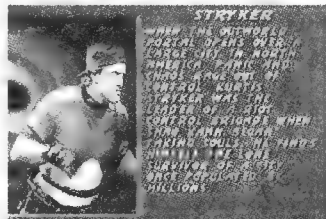 STRYKER
WHEN THE OUTWORLD
PORTAL OPENS OVER A
LARGE CITY IN NORTH
AMERICA PANIC AND
CHAOS RAGE OUT OF
CONTROL. KURTIS
STRYKER WAS THE
LEADER OF THE RIOT
CONTROL BRIGADE WHEN
SHAO KAHN BEGAN
TAKING SOULS. HE FINDS
THE LONE
SURVIVOR OF A CITY
ONCE POPULATED BY
MILLIONS